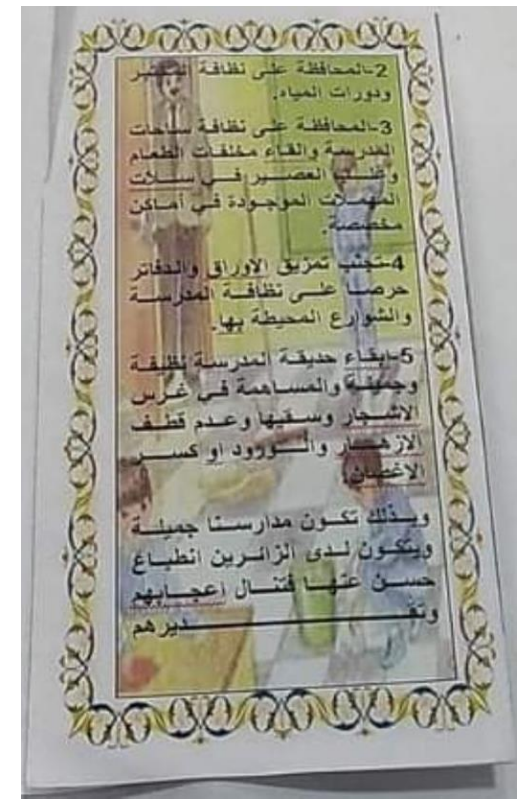 2-المحافظة على نظافة المختبر
ودورات المياه.
3-المحافظة على نظافة ساحات
المدرسة والقاء مخلفات الطعام
وعلب العصير في سلات
المهملات الموجودة في أماكن
مخصصة.
4-تجنب تمزيق الاوراق والدفاتر
حرصا على نظافة المدرسة
والشوارع المحيطة بها.
5-ابقاء حديقة المدرسة نظيفة
وجميلة والمساهمة في غرس
الاشجار وسقيها وعدم قطف
الازهار والورود او كسر
الاغصان.
وبذلك تكون مدارسنا جميلة
ويتكون لدى الزائرين انطباع
حسن عنها فتنال إعجابهم
وتقديرهم